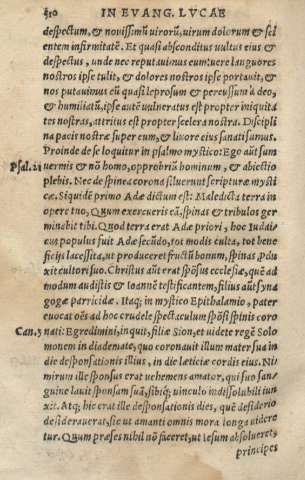 510 IN EVANG. LVCAE
despectum, & nouissimũ uirorũ, uirum dolorum & sci
entem infirmitatẽ. Et quasi absconditus uultus eius &
despectus, unde nec reputauimus eum: uere languores
nostros ipse tulit, & dolores nostros ipse portauit, &
nos putauimus eũ quasi leprosum & percussum à deo,
& humiliatũ, ipse autẽ uulneratus est propter iniquita
tes nostras, attritus est propter scelera nostra. Discipli
na pacis nostræ super eum, & liuore eius sanati sumus.
Proinde de se loquitur in psalmo mystico: Ego aũt sum
Psal. 21 uermis & nõ homo, opprobriũ hominum, & abiectio
plebis. Nec de spinea corona siluerunt scripturæ mysti
cæ. Siquidẽ primo Adæ dictum est: Maledicta terra in
opere tuo, Quum exercueris eã, spinas & tribulos ger
minabit tibi. Quod terra erat Adæ priori, hoc Iudai
cus populus fuit Adæ secũdo, tot modis culta, tot bene
ficijs lacessita, ut produceret fructũ bonum, spinas pdu
xit cultori suo. Christus aũt erat spõsus ecclesiæ, quẽ ad
modum audistis & Ioannẽ testificantem, filius aũt syna
gogæ parricidæ. Itaq; in mystico Epithalamio, pater
euocat oẽs ad hoc crudele spectaculum spõsi spinis coro
Can. 3 nati: Egredimini, inquit, filiæ Sion, et uidete regẽ Solo
monem in diademate, quo coronauit illum mater sua in
die desponsationis illius, in die lætitiæ cordis eius. Ni
mirum ille sponsus erat uehemens amator, qui suo san
guine lauit sponsam suã, sibiq; uinculo indissolubili iun
xit. Atq; hic erat ille desponsationis dies, quẽ desyderio
desyderauerat, sic ut amanti omnis mora longa uidere
tur. Quum præses nihil nõ faceret, ut Iesum absolueret,
principes